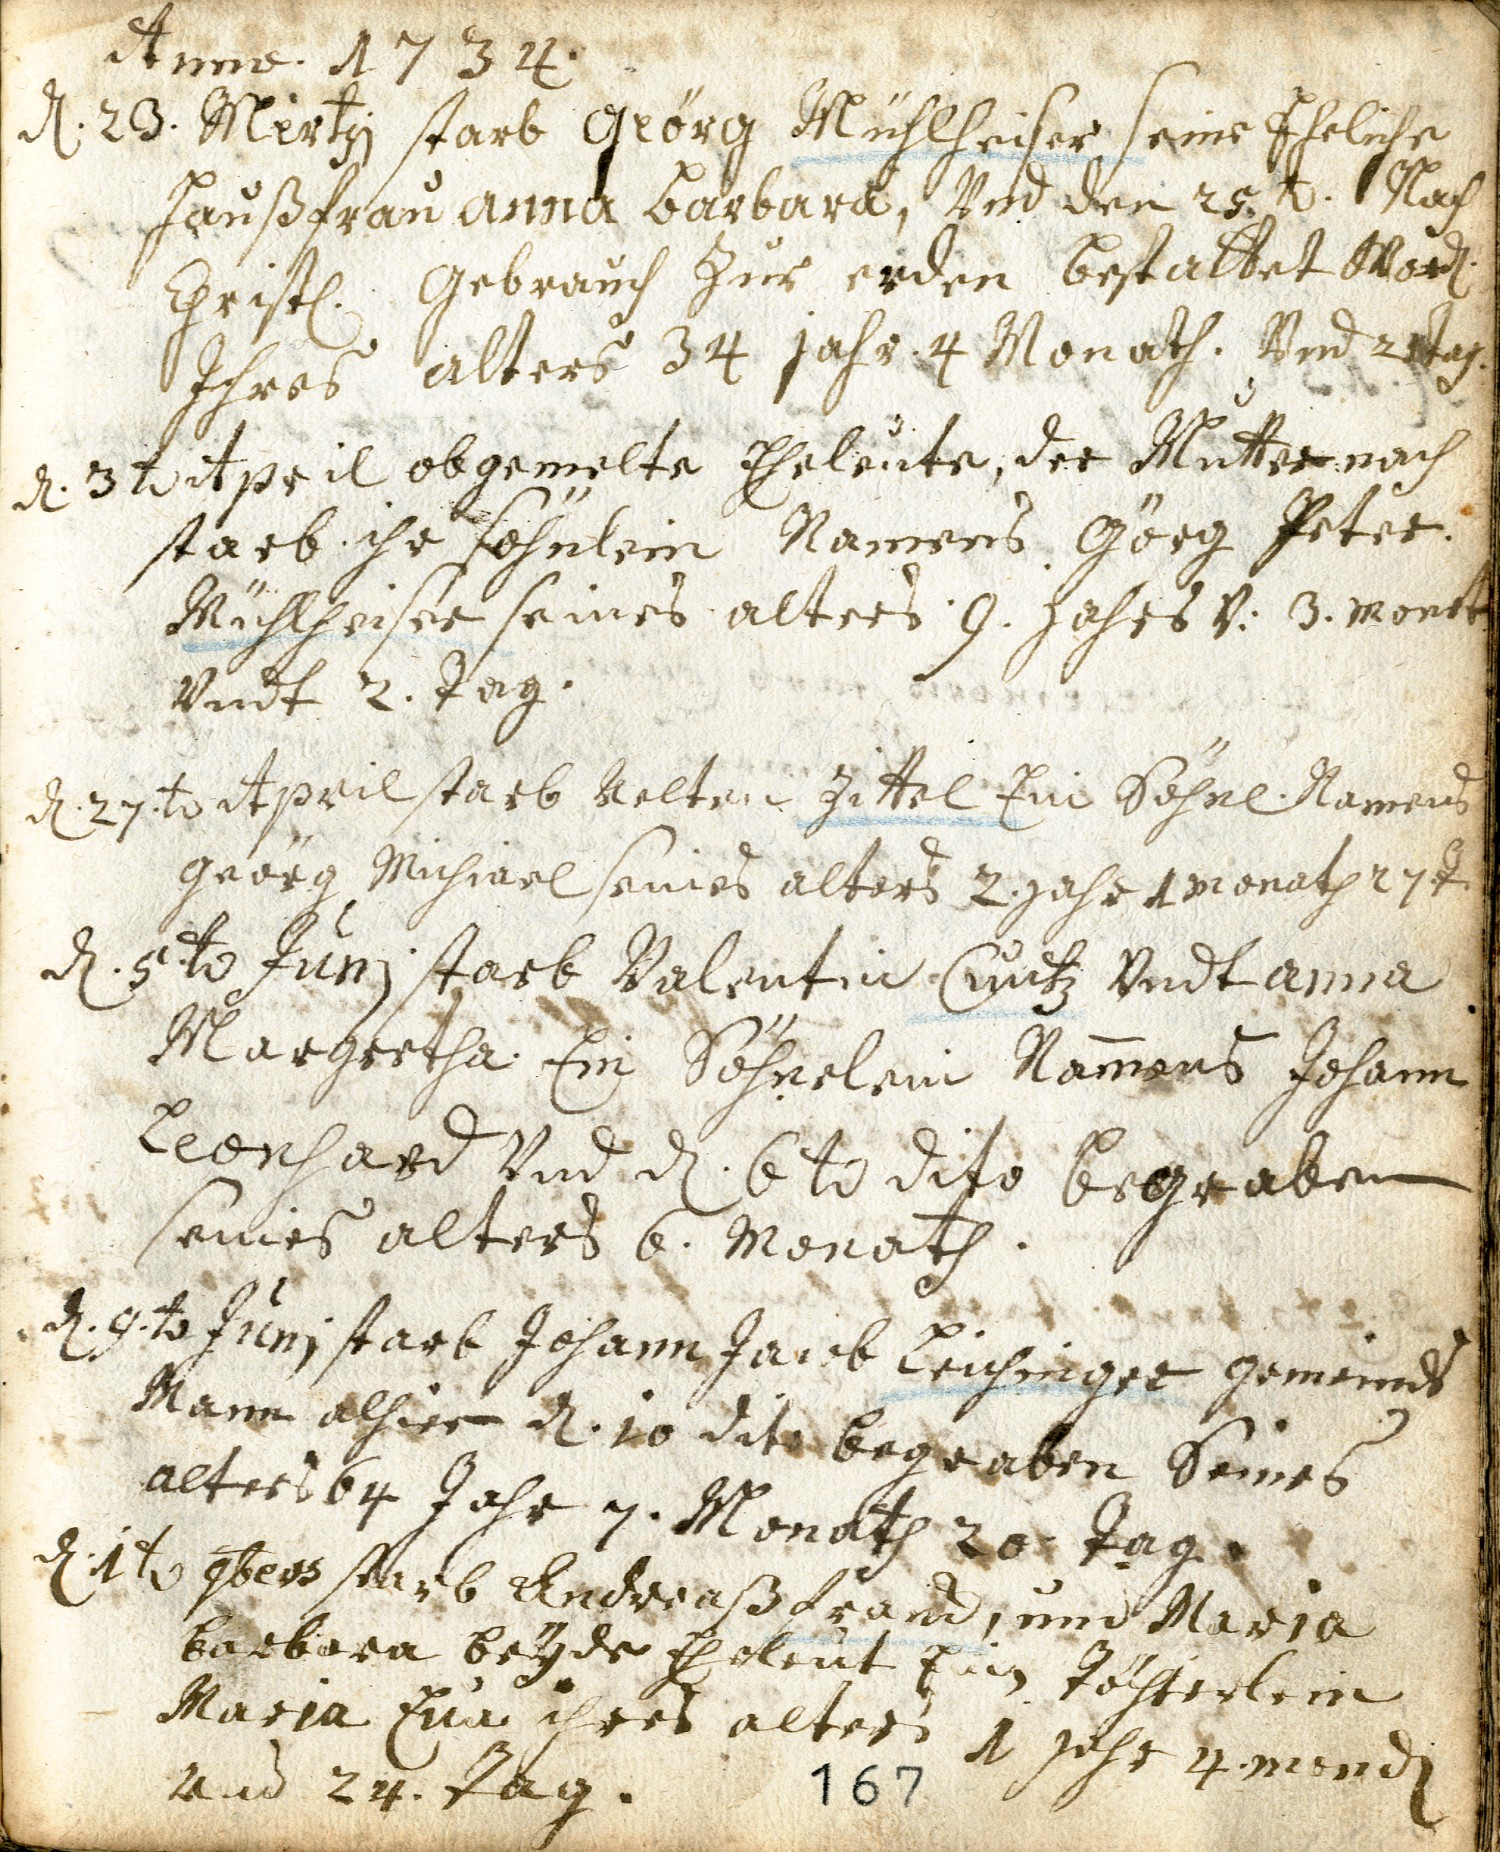 Anno. 1734.
d. 23. Mertzj starb Geörg Mühlheiser seine Eheliche
Haußfrau anna barbara, Vnd den 25. to. Nach
Christl. Gebrauch Zur erden bestattet Word.
Ihres alters 34 jahr. 4 Monath. Vnd 21 tag.
d. 3 to April obgemelte Eheleüte, der Mutter nach
starb ihr söhnlein Namens Görg Peter.
Mühlheiser seines alters 9. Jahrs V: 3. monet
Vndt 2. Tag.
d. 27. to April starb Velten Zittel Ein Söhnl. Namens
Geörg Michael seines alters 2. jahr 1 monath 27 T
d. 5 to Junj starb Valentin Cuntz Vndt anna
Margretha Ein Söhnelein Nammens Johann
Leonhard Vnd d. 6 to dito begraben
seines alters 6. Monath.
d. 9. to Junj starb Johann Jacob Leichinger gemeinds
Mann alhier d. 10 dito begraben Seines
alters 64 Jahr 7. Monath 20 Tag.
d. 1 to 9bers starb Andreaß frand, und Maria
barbara beÿde Eheleut Ein Töchterlein
Maria Eva ihres alters 1 jahr 4. mond
Vnd 24. Tag.
167